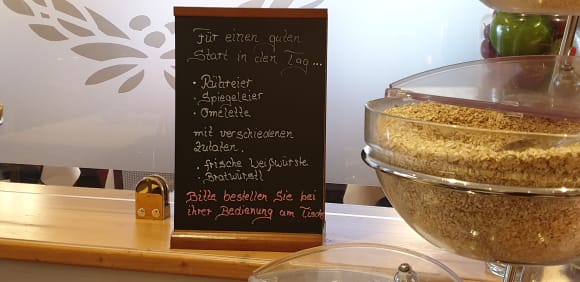 Für einen guten
Start in den Tag...
• Rühreier
• Spiegeleier
• Omelette
mit verschiedenen
Zutaten.
• frische Weißwürste
• Bratwürstl
Bitte bestellen Sie bei
ihrer Bedienung am Tisch